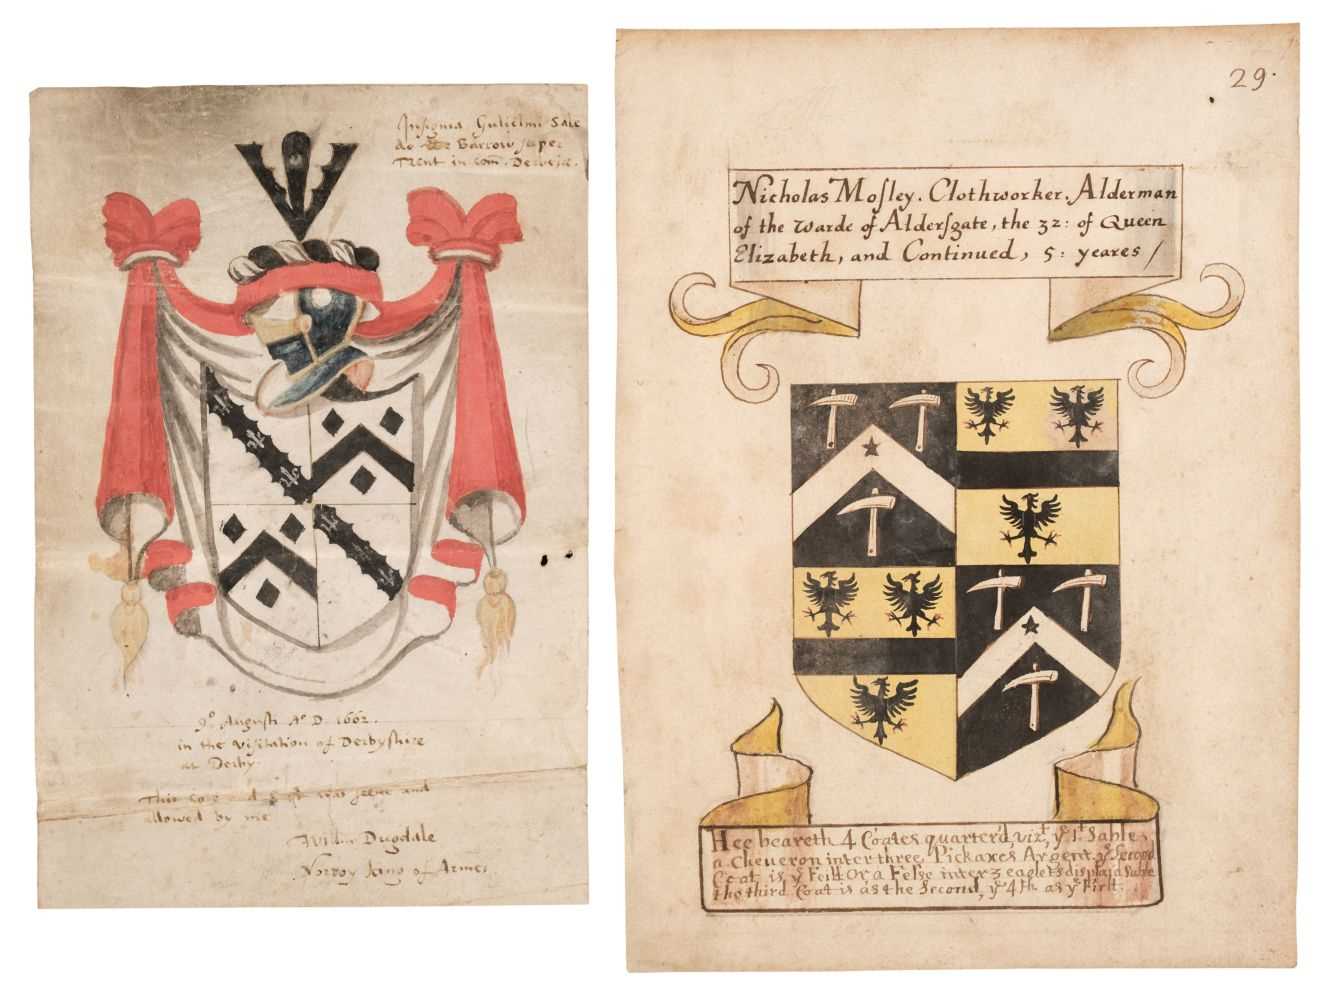 Insignia Gulielmi Sale
de Barrow super
Trent in com. Derbeiæ.
9º August Aº D. 1662.
in the Visitation of Derbyshire
at Derby.
This cote was seene and
allowed by me
Willm Dugdale
Norroy King of Armes
29.
Nicholas Mosley. Clothworker. Alderman
of the warde of Aldersgate, the 32: of Queen
Elizabeth, and Continued, 5: yeares /
Hee beareth 4 Coates quarter'd, vizt, ye 1t Sable
a Cheueron inter three Pickaxes Argent, ye Second
Coat is ye Feild Or a Fesse inter 3 eaglets displaid Sable
the third Coat is as the Second, ye 4th as ye first.